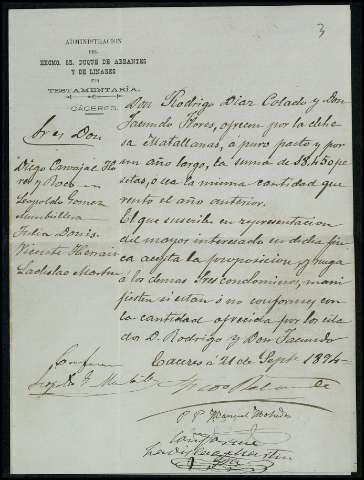 3
ADMINISTRACION
DEL
EXCMO. SR. DUQUE DE ABRANTES
Y DE LINARES
POR
TESTAMENTARÍA.
CÁCERES.
Sres Don
Diego Carvajal
Leopoldo Gomez
Julia Donis
Vicente
Ladislao Martin
Don Rodrigo Diaz Colado y Don
Facundo Flores, ofrecen por la dehe
sa Matallanas, á puro pasto y por
un año largo, la suma de 58,450 pe
setas, o sea la misma cantidad que
rentó el año anterior.
El que suscribe en representacion
del mayor interesado en dicha fin
ca acepta la proposicion, y ruega
á los demas Sres condominos, mani
fiesten si estan ó no conformes con
la cantidad ofrecida por los cita
dos D. Rodrigo y Don Facundo
Caceres á 21 de Septe 1894 -
Conforme
P P Manuel
Conforme
Ladislao Martin